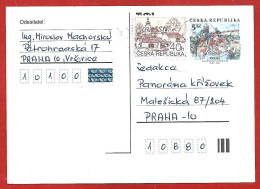 Odesílatel:
Ing. Miroslav Machorský
Petrohradská 17
PRAHA 10, Vršovice
1 0 1 0 0
40h
ČESKÁ REPUBLIKA
Redakce
Panoráma křížovek
Malešická 87/204
PRAHA-10
1 0 8 8 0